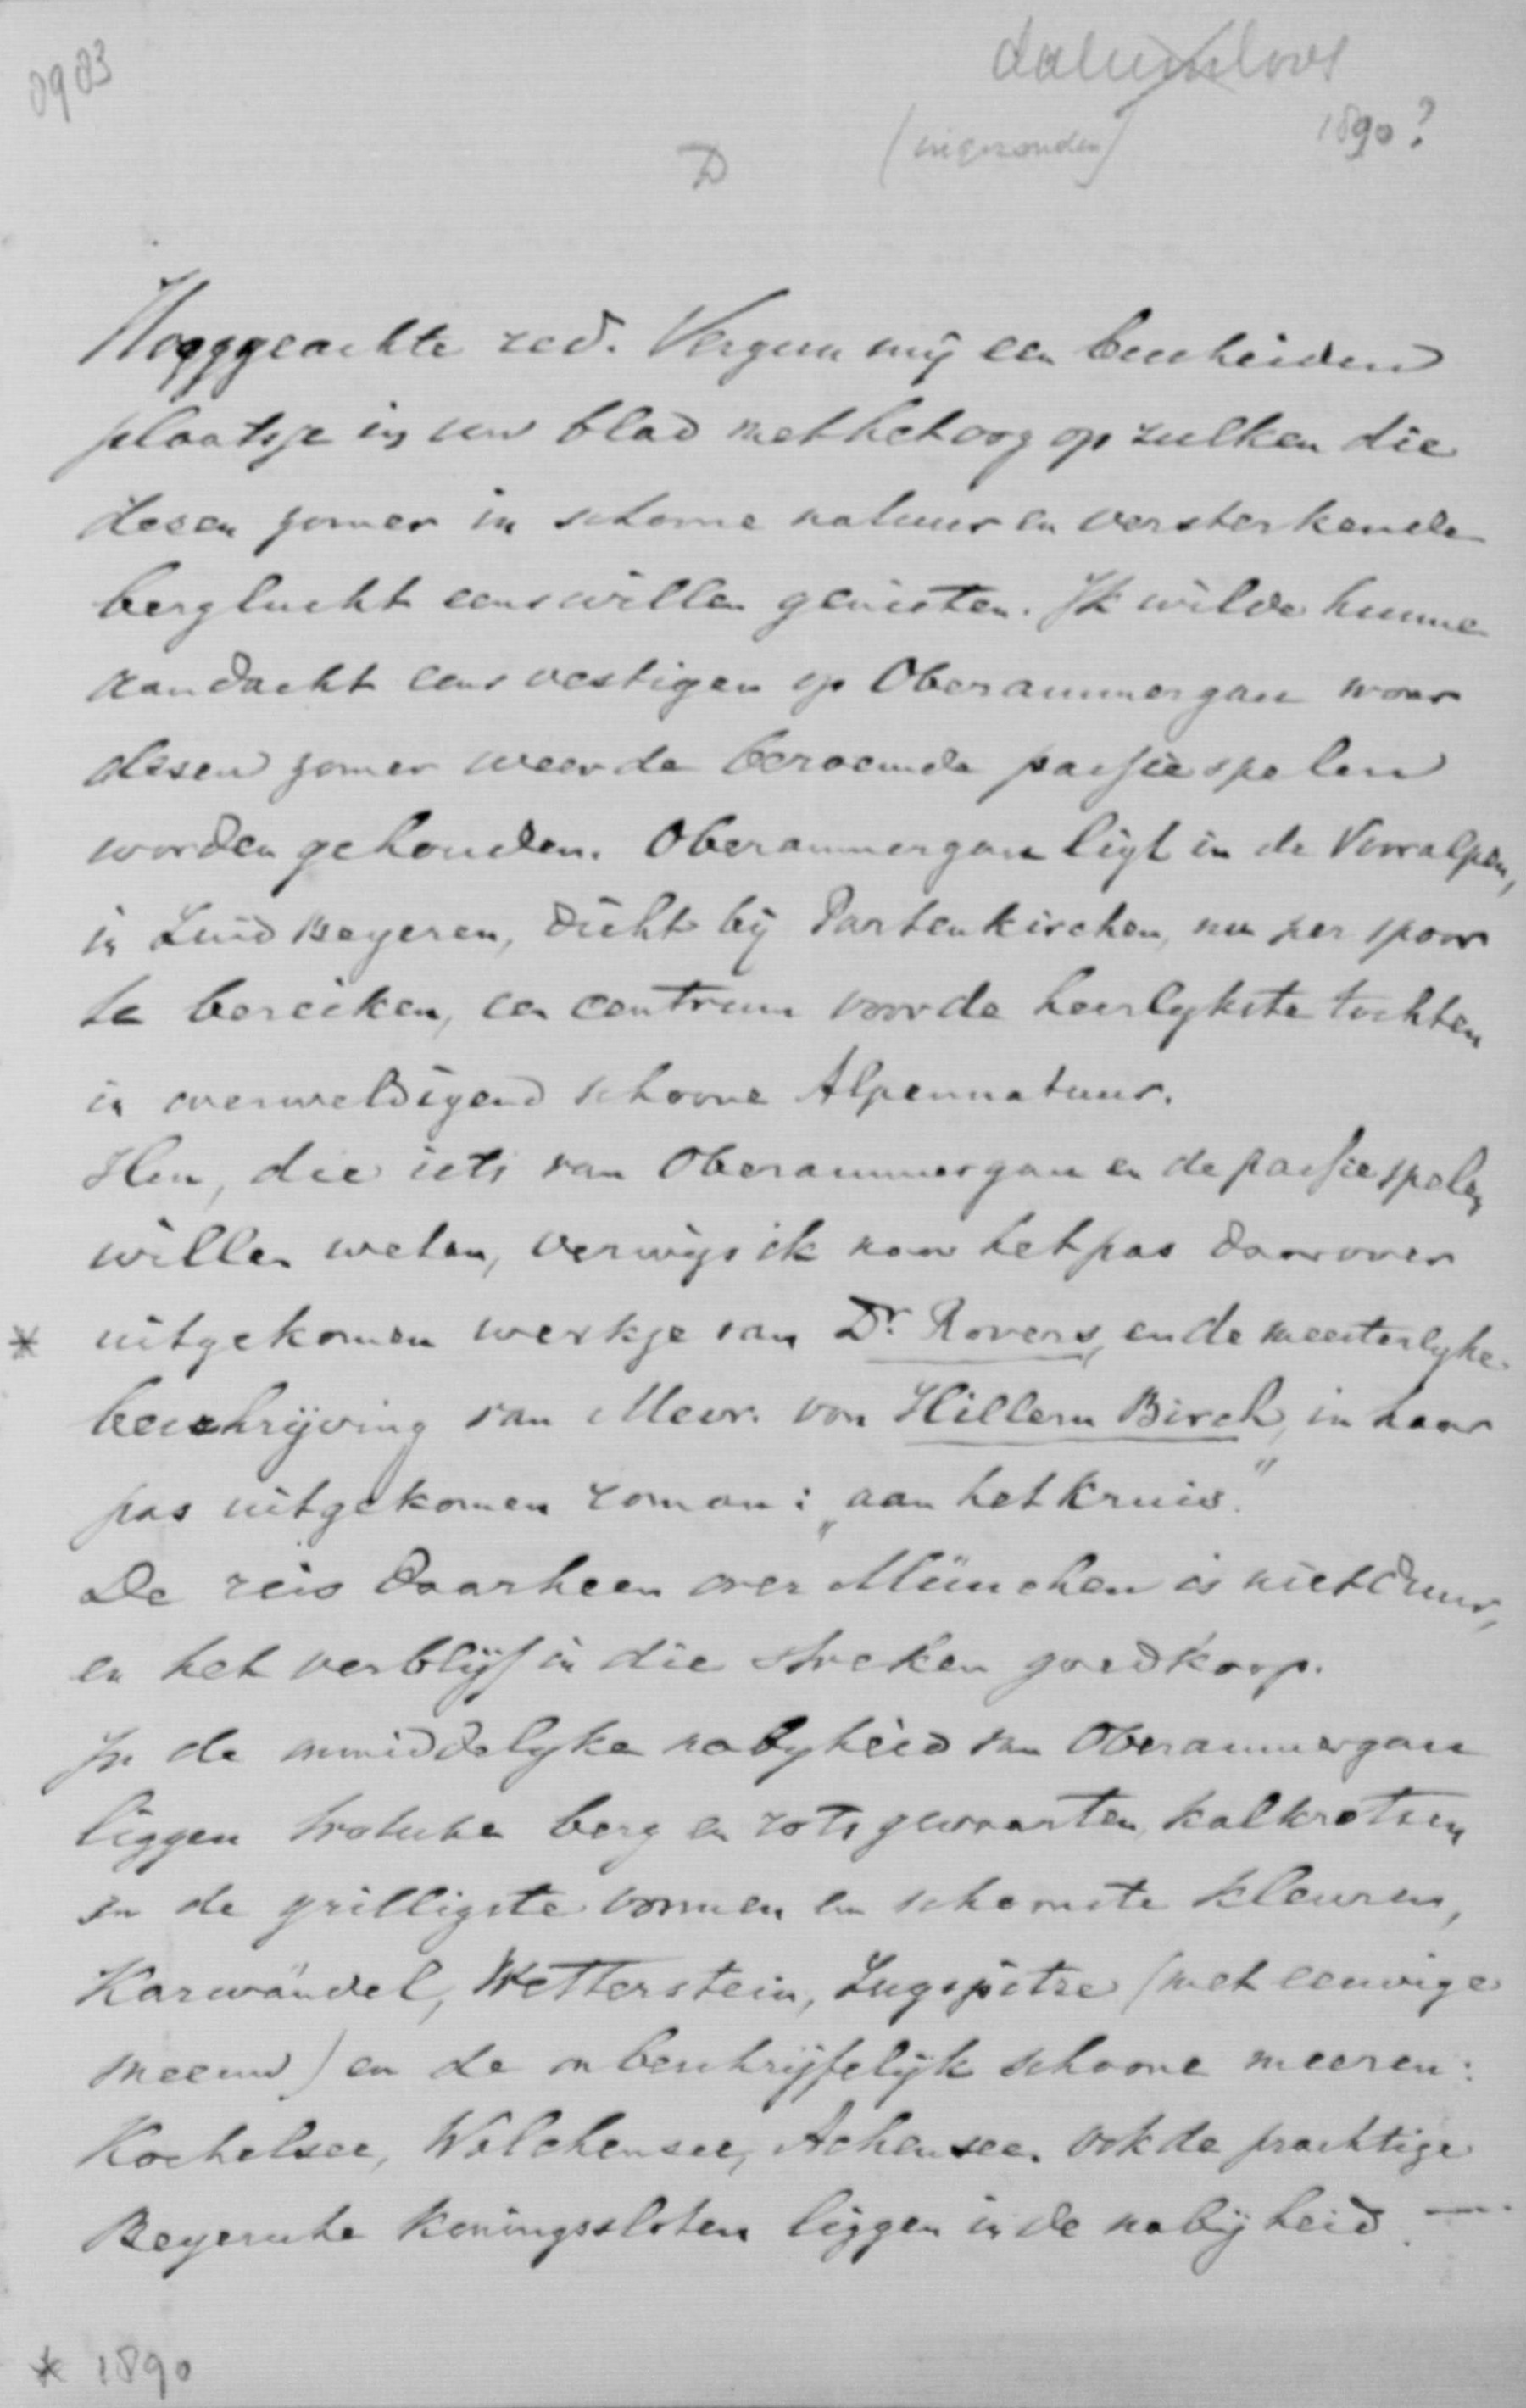 0903
datumloos
(ingezonden)
1890?
D
Hogggeachte red. Vergun mij een bescheiden
plaatsje in uw blad met het oog op zulken die
dezen zomer in schoone natuur en versterkende
berglucht eens willen genieten. Ik wilde hunne
aandacht eens vestigen op Oberammergau waar
dezen zomer weer de beroemde passiespelen
worden gehouden. Oberammergau ligt in de Vooralpen,
in Zuid Beyeren, dicht bij Partenkirchen, nu per spoor
te bereiken, een centrum voor de heerlykste tochten
in overweldigend schoone Alpennatuur.
Hen, die iets van Oberammergau en de passiespelen
willen weten, verwijs ik naar het pas daarover
* uitgekomen werkje van Dr. Rovers, en de meesterlyke
beschrijving van Mevr. von Hillern Birch, in haar
pas uitgekomen roman: „aan het kruis."
De reis daarheen over München is niet duur,
en het verblijf in die streken goedkoop.
In de onmiddelyke nabyheid van Oberammergau
liggen trotsche berg en rotsgevaarten, kalkrotsen
in de grilligste vormen en schoonste kleuren,
Karwändel, Wetterstein, Zugspitze (met eeuwige
sneeuw) en de onbeschrijfelijk schoone meeren:
Kochelsee, Walchensee, Achensee. Ook de prachtige
Beyersche koningssloten liggen in de nabijheid. —
* 1890